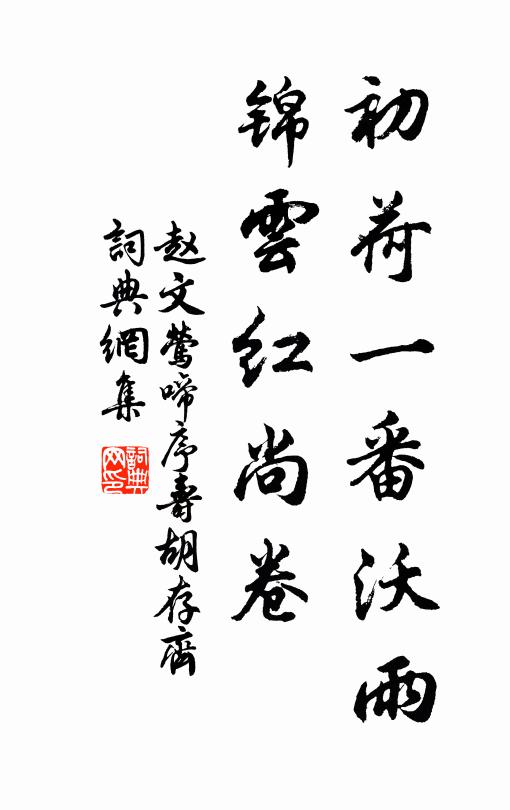 初荷一番沃雨
錦雲紅尚卷
赵文鶯啼序壽胡存齊
詞典網集
詞典網印